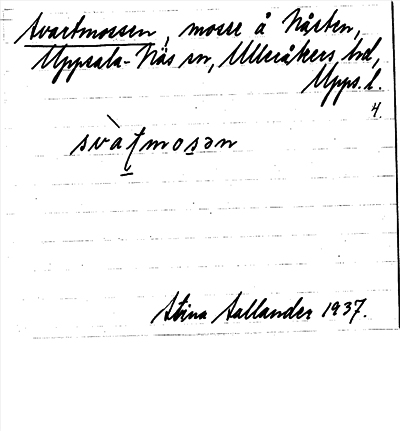 Svartmossen, mosse å Nåsten,
Uppsala-Näs sn, Ulleråkers hd,
Upps. l.
4.
svàʈmosən
Stina Sallander 1937.